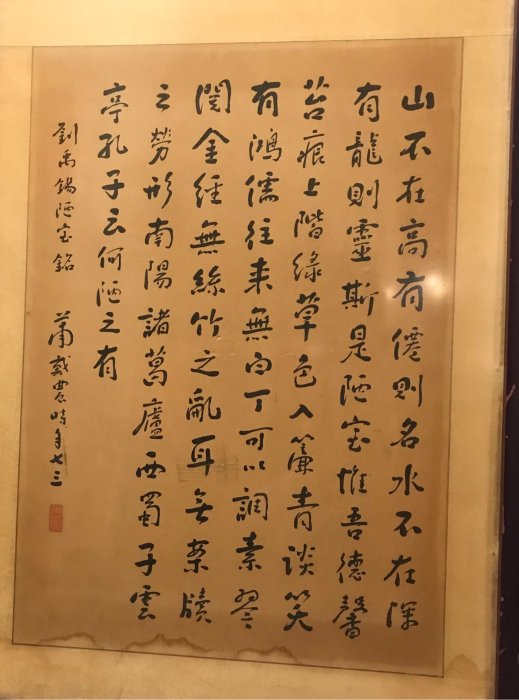 山不在高有僊則名水不在深
有龍則靈斯是陋室惟吾德馨
苔痕上階綠草色入簾青談笑
有鴻儒往来無白丁可以調素琴
閱金經無絲竹之亂耳无案牘
之勞形南陽諸葛廬西蜀子雲
亭孔子云何陋之有
劉禹錫陋室銘 蕭農時年七三